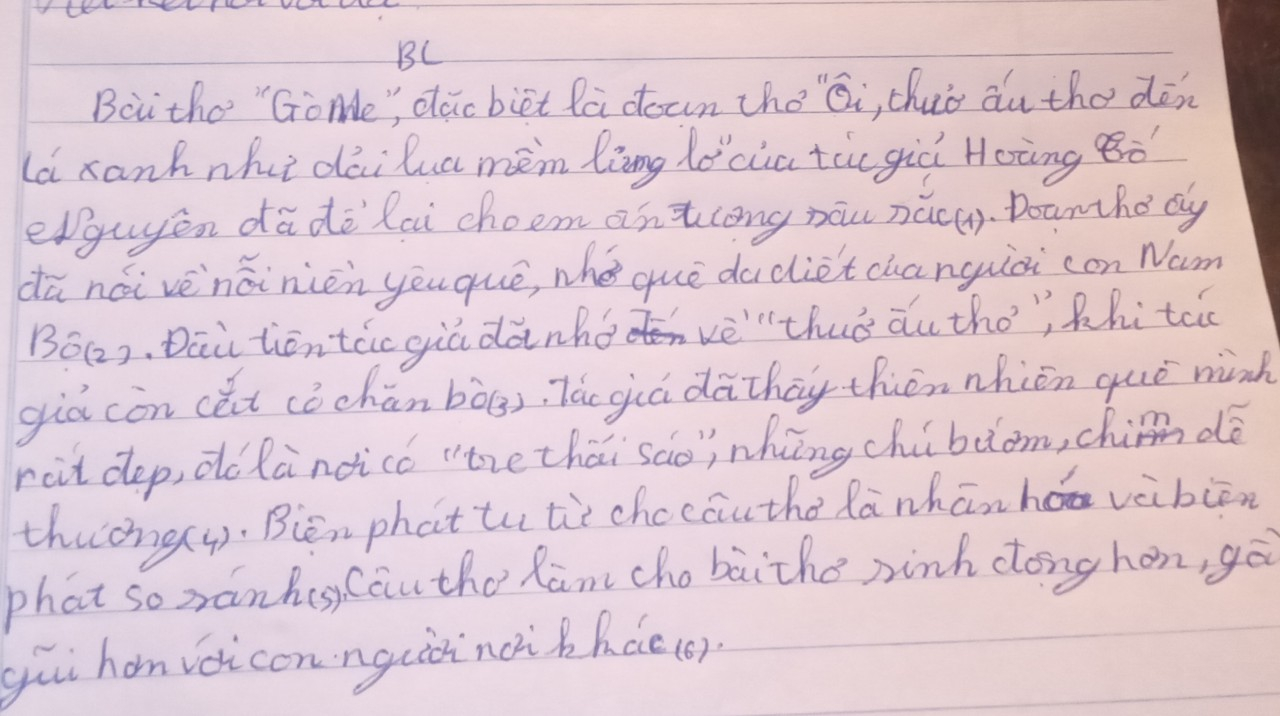 BC
Bài thơ "Gò Me", đặc biệt là đoạn thơ "Ôi, thuở ấu thơ đến
lá xanh như dải lụa mềm lửng lơ" của tác giả Hoàng Tố
Nguyên đã để lại cho em ấn tượng sâu sắc(1). Đoạn thơ ấy
đã nói về nỗi niền yêu quê, nhớ quê da diết của người con Nam
Bộ(2). Đầu tiên tác giả đã nhớ về "thuở ấu thơ", khi tác
giả còn cắt cỏ chăn bò(3). Tác giả đã thấy thiên nhiên quê mình
rất đẹp, đó là nơi có "tre thổi sáo", những chú bướm, chim dễ
thương(4). Biện phát tu từ cho câu thơ là nhân hóa và biện
phát so sánh(5). Câu thơ làm cho bài thơ sinh động hơn, gầ
gũi hơn với con người nơi khác(6).